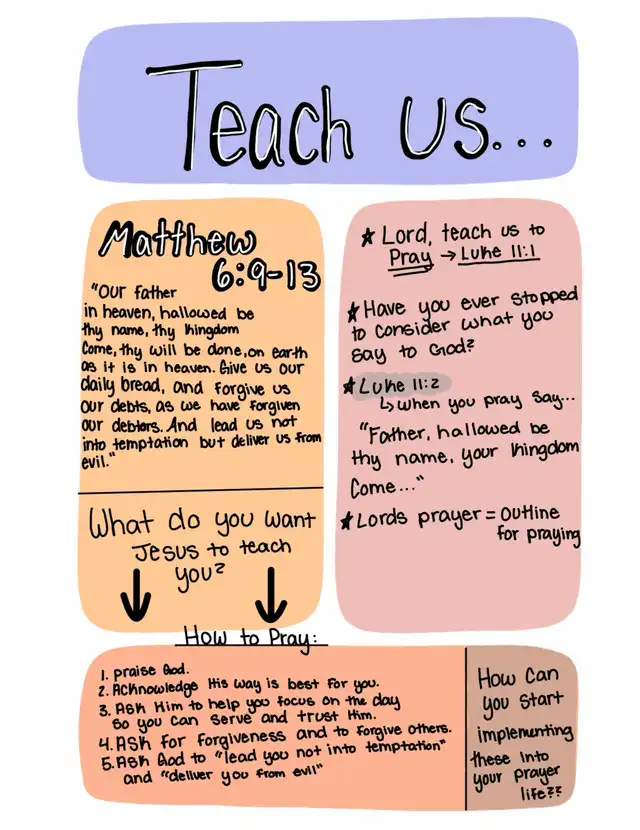 Teach us...
Matthew
6:9-13
"Our father
in heaven, hallowed be
thy name, thy kingdom
Come, thy will be done, on earth
as it is in heaven. Give us our
daily bread, and forgive us
our debts, as we have forgiven
our debtors. And lead us not
into temptation but deliver us from
evil."
What do you want
Jesus to teach
you?
★ Lord, teach us to
Pray → Luke 11:1
★ Have you ever stopped
to consider what you
say to God?
★ Luke 11:2
↳ when you pray say...
"Father, hallowed be
thy name, your kingdom
Come..."
★ Lords prayer = outline
for praying
How to Pray:
1. praise God.
2. Acknowledge His way is best for you.
3. Ask Him to help you focus on the day
so you can serve and trust Him.
4. Ask for forgiveness and to forgive others.
5. Ask God to "lead you not into temptation"
and "deliver you from evil"
How Can
you start
implementing
these into
your prayer
life??